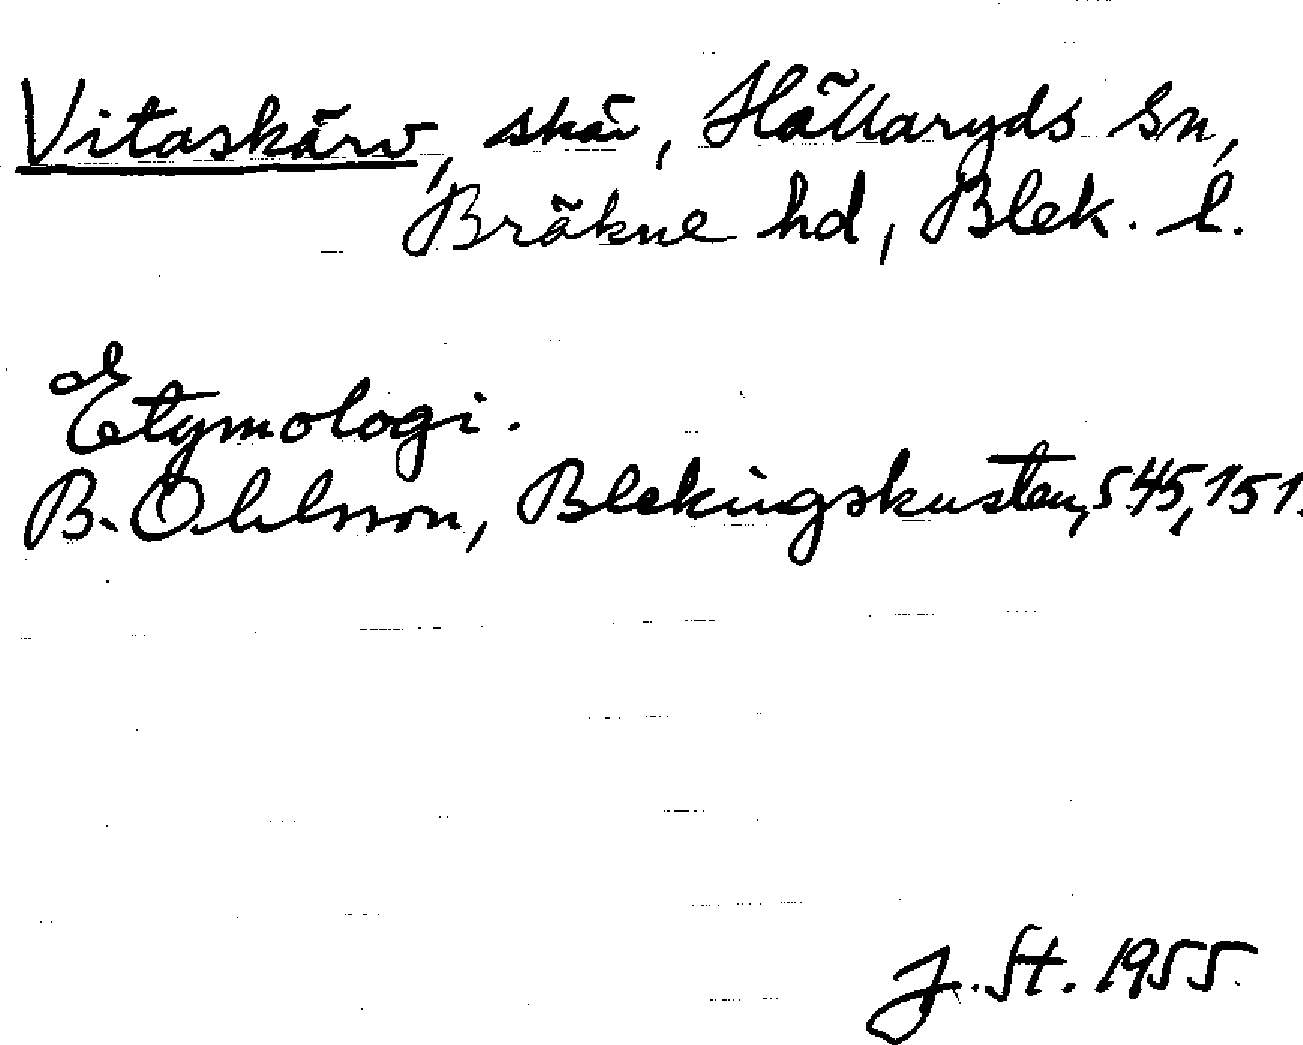 Vitaskärv, skär, Hällaryds sn,
Bräkne hd, Blek. l.
Etymologi.
B. Ohlsson, Blekingskusten, s 45, 151.
J. St. 1955.